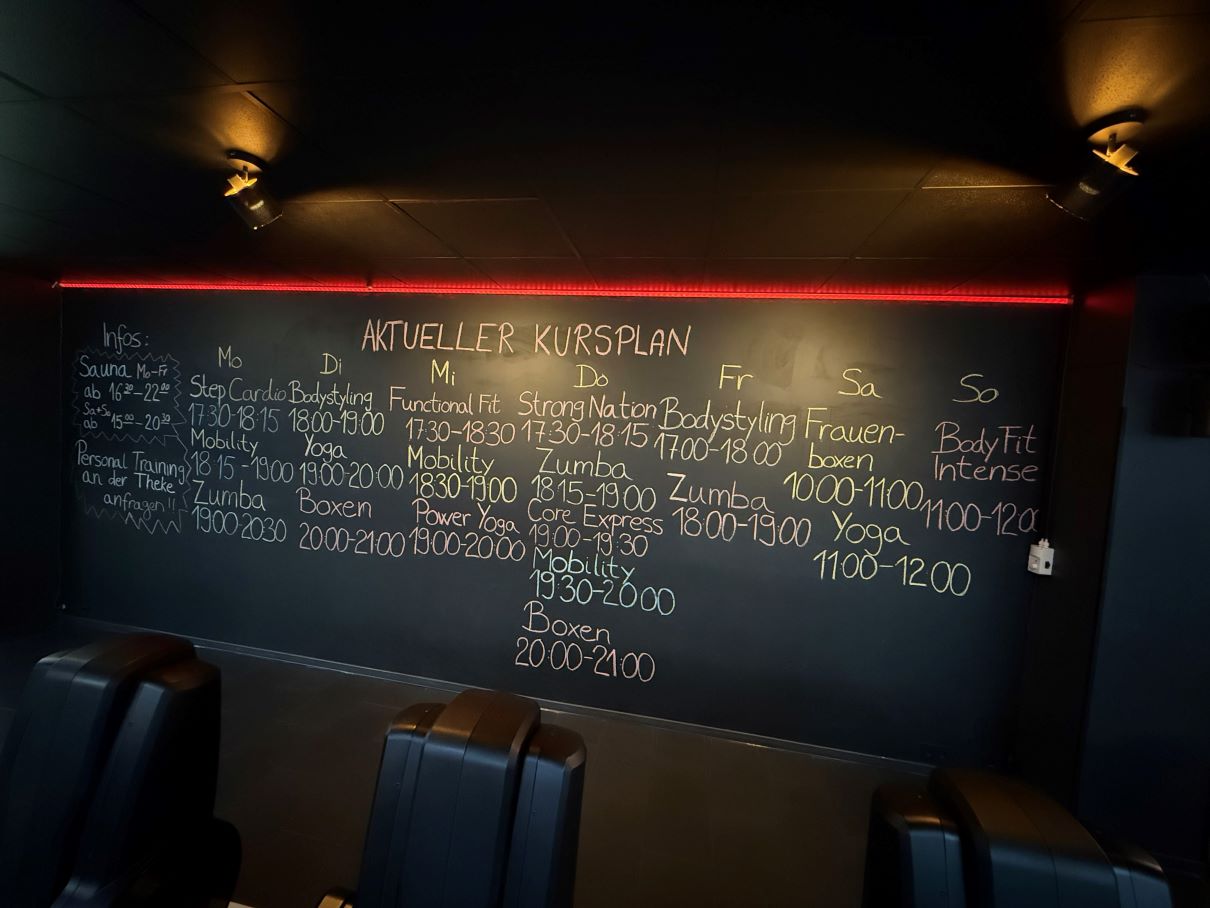 AKTUELLER KURSPLAN
Infos:
Sauna Mo-Fr
ab 16³⁰-22⁰⁰
Sa+So
ab 15⁰⁰-20³⁰
Personal Training
an der Theke
anfragen!!
Mo
Step Cardio
17:30-18:15
Mobility
18:15-19:00
Zumba
19:00-20:30
Di
Bodystyling
18:00-19:00
Yoga
19:00-20:00
Boxen
20:00-21:00
Mi
Functional Fit
17:30-18:30
Mobility
18:30-19:00
Power Yoga
19:00-20:00
Do
Strong Nation
17:30-18:15
Zumba
18:15-19:00
Core Express
19:00-19:30
Mobility
19:30-20:00
Boxen
20:00-21:00
Fr
Bodystyling
17:00-18:00
Zumba
18:00-19:00
Sa
Frauen-
boxen
10:00-11:00
Yoga
11:00-12:00
So
BodyFit
Intense
11:00-12:00